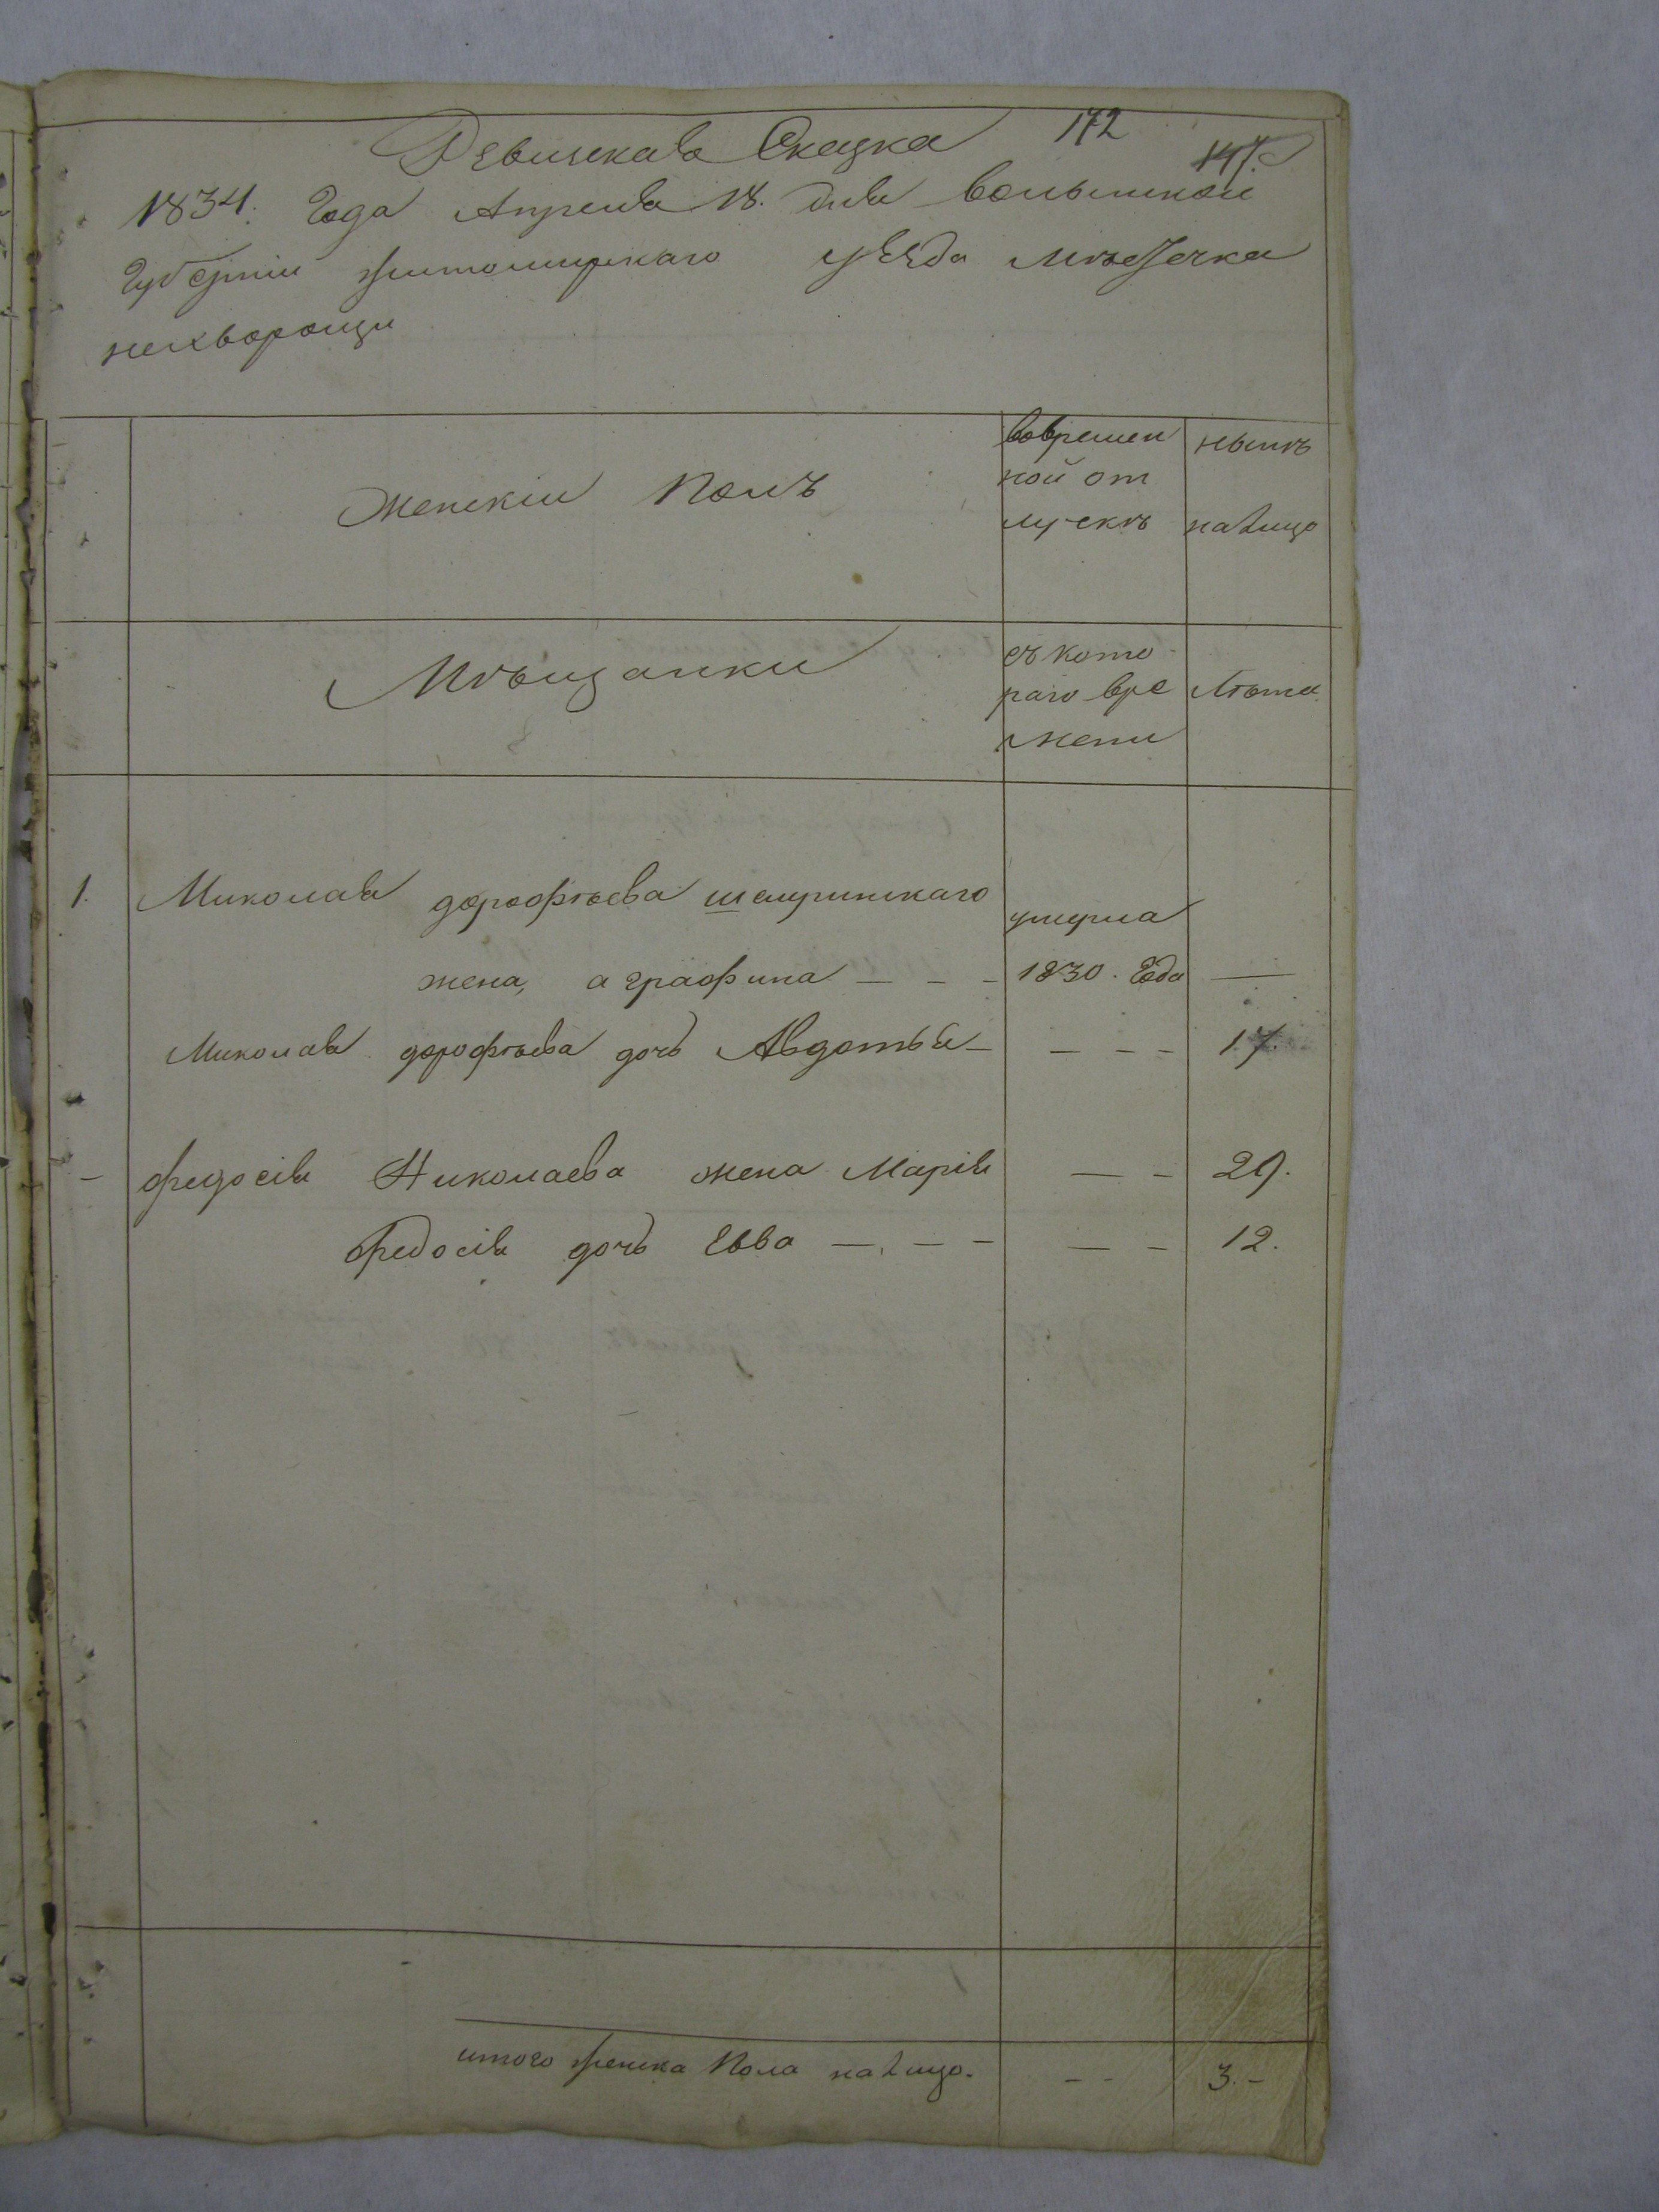 Ревизская Сказка 172
1834. Года Апреля 18. дня волынской
Губернии житомирскаго уезда местечка
нехворощи
женскии Полъ
вовремен
ной от
лучкѣ
нынѣ
налицо
Мѣщанки
съ кото
раго вре
мени
Лѣта
1. Миколая дорофѣева умерла
жена, аграфина — - - 1830. Года —
Миколая дорофѣева дочь Авдотья - - - - 17.
- федосія Николаева жена Марія — - 29.
федосія дочь Евва — - - — - 12.
итого женска Пола налицо. - - 3. -